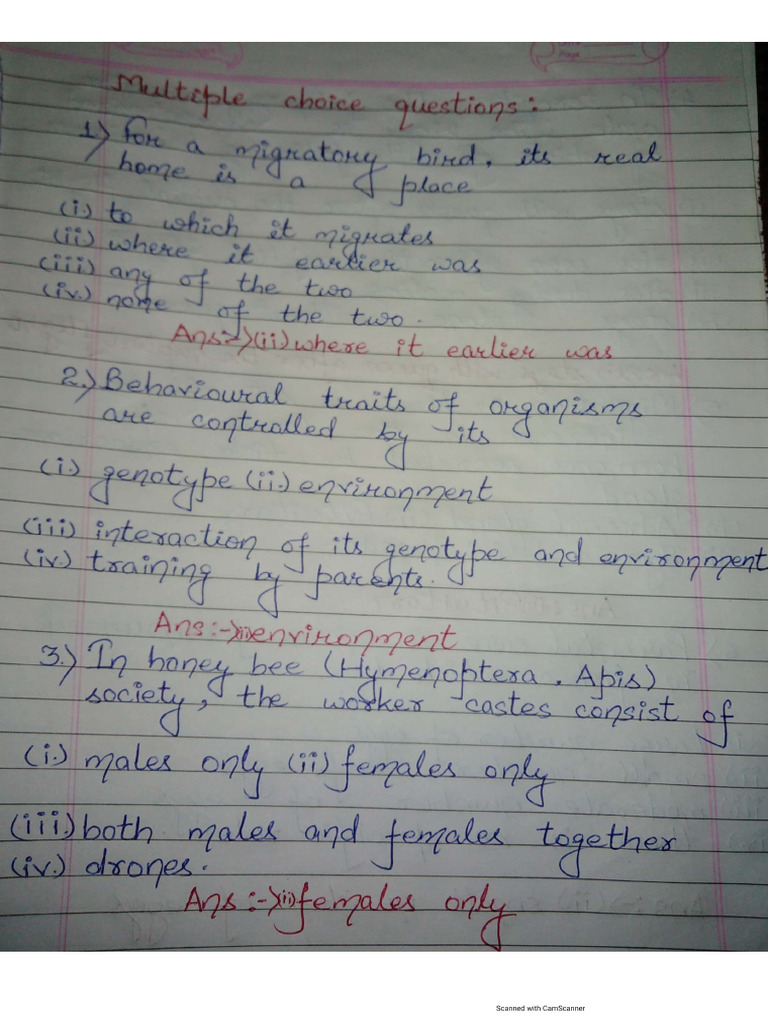 Multiple choice questions:
1) For a migratory bird, its real
home is a place
(i.) to which it migrates
(ii.) where it earlier was
(iii) any of the two
(iv.) none of the two.
Ans:→(ii) where it earlier was
2.) Behavioural traits of organisms
are controlled by its
(i.) genotype (ii.) environment
(iii) interaction of its genotype and environment
(iv.) training by parents.
Ans:→(ii) environment
3.) In honey bee (Hymenoptera, Apis)
society, the worker castes consist of
(i.) males only (ii) females only
(iii.) both males and females together
(iv.) drones.
Ans:→(ii) females only
Scanned with CamScanner